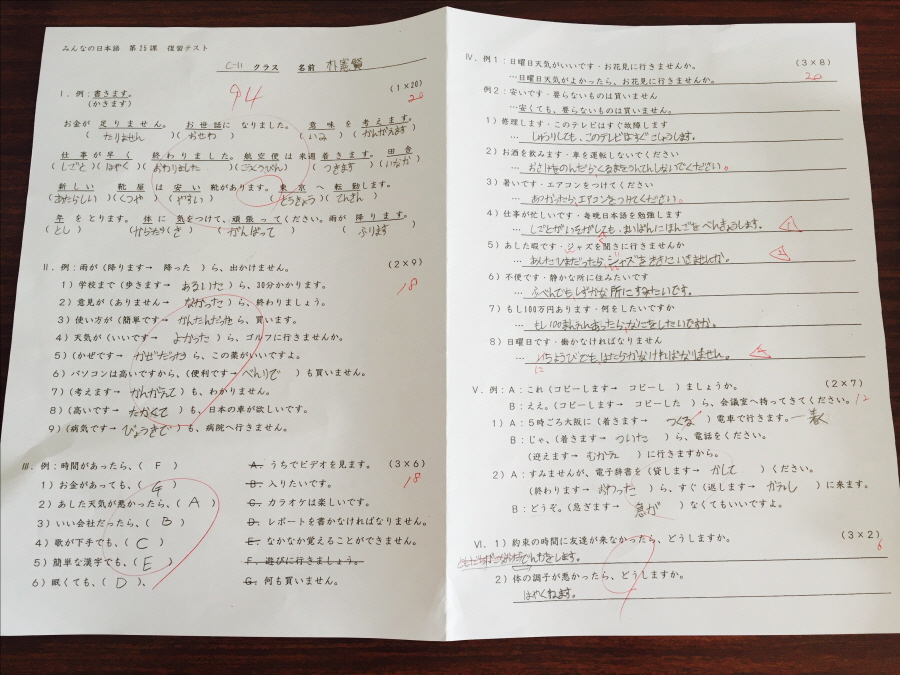 みんなの日本語 第25課 復習テスト
C-11 クラス 名前 朴憲賢
94
Ⅰ. 例：書きます。 (1×20)
(かきます) 20
お金が 足りません。 お世話に なりました。 意味 を 考えます。
(たりません)(おせわ)(いみ)(かんがえます)
仕事 が 早く 終わりました。 航空便 は 来週 着きます。 田舎
(しごと)(はやく)(おわりました)(こうくうびん)(つきます)(いなか)
新しい 靴屋 は 安い 靴があります。 東京 へ 転勤します。
(あたらしい)(くつや)(やすい)(とうきょう)(てんきん)
年 を とります。 体 に 気をつけて、頑張って ください。雨が 降ります。
(とし)(からだ)(き)(がんばって)(ふります)
Ⅱ. 例：雨が（降ります→ 降った ）ら、出かけません。 (2×9)
1) 学校まで（歩きます→ あるいた ）ら、30分かかります。 18
2) 意見が（ありません→ なかった ）ら、終わりましょう。
3) 使い方が（簡単です→ かんたんだった ）ら、買います。
4) 天気が（いいです→ よかった ）ら、ゴルフに行きませんか。
5)（かぜです→ かぜだった ）ら、この薬がいいですよ。
6) パソコンは高いですから、（便利です→ べんりで ）も買いません。
7)（考えます→ かんがえて ）も、わかりません。
8)（高いです→ たかくて ）も、日本の車が欲しいです。
9)（病気です→ びょうきで ）も、病院へ行きません。
Ⅲ. 例：時間があったら、（ F ） A. うちでビデオを見ます。 (3×6)
1) お金があっても、（ G ） B. 入りたいです。 18
2) あした天気が悪かったら、（ A ） C. カラオケは楽しいです。
3) いい会社だったら、（ B ） D. レポートを書かなければなりません。
4) 歌が下手でも、（ C ） E. なかなか覚えることができません。
5) 簡単な漢字でも、（ E ） F. 遊びに行きましょう。
6) 眠くても、（ D ）、 G. 何も買いません。
Ⅳ. 例1：日曜日天気がいいです・お花見に行きませんか。 (3×8)
…日曜日天気がよかったら、お花見に行きませんか。 20
例2：安いです・要らないものは買いません
…安くても、要らないものは買いません。
1) 修理します・このテレビはすぐ故障します
… しゅうりしても、このテレビはすぐこしょうします。
2) お酒を飲みます・車を運転しないでください
… おさけをのんだら、くるまをうんてんしないでください。
3) 暑いです・エアコンをつけてください
… あつかったら、エアコンをつけてください。
4) 仕事が忙しいです・毎晩日本語を勉強します
… しごとがいそがしても、まいばんにほんごをべんきょうします。
5) あした暇です・ジャズを聞きに行きませんか
… あしたひまだったら、ジャズをききにいきませんか。
6) 不便です・静かな所に住みたいです
… ふべんでもしずかな所にすみたいです。
7) もし100万円あります・何をしたいですか
… もし100まんえんあったら、なにをしたいですか。
8) 日曜日です・働かなければなりません
… いちょうびでも、はたらかなければなりません。
に
Ⅴ. 例：A：これ（コピーします→ コピーし ）ましょうか。 (2×7)
B：ええ。（コピーします→ コピーした ）ら、会議室へ持ってきてください。 12
1) A：5時ごろ大阪に（着きます→ つくる ）電車で行きます。
B：じゃ、（着きます→ ついた ）ら、電話をください。
（迎えます→ むかえ ）に行きますから。
2) A：すみませんが、電子辞書を（貸します→ かして ）ください。
（終わります→ おわった ）ら、すぐ（返します→ かえし ）に来ます。
B：どうぞ。（急ぎます→ 急が ）なくてもいいですよ。
Ⅵ. 1) 約束の時間に友達が来なかったら、どうしますか。 (3×2)
6
2) 体の調子が悪かったら、どうしますか。
はやくねます。